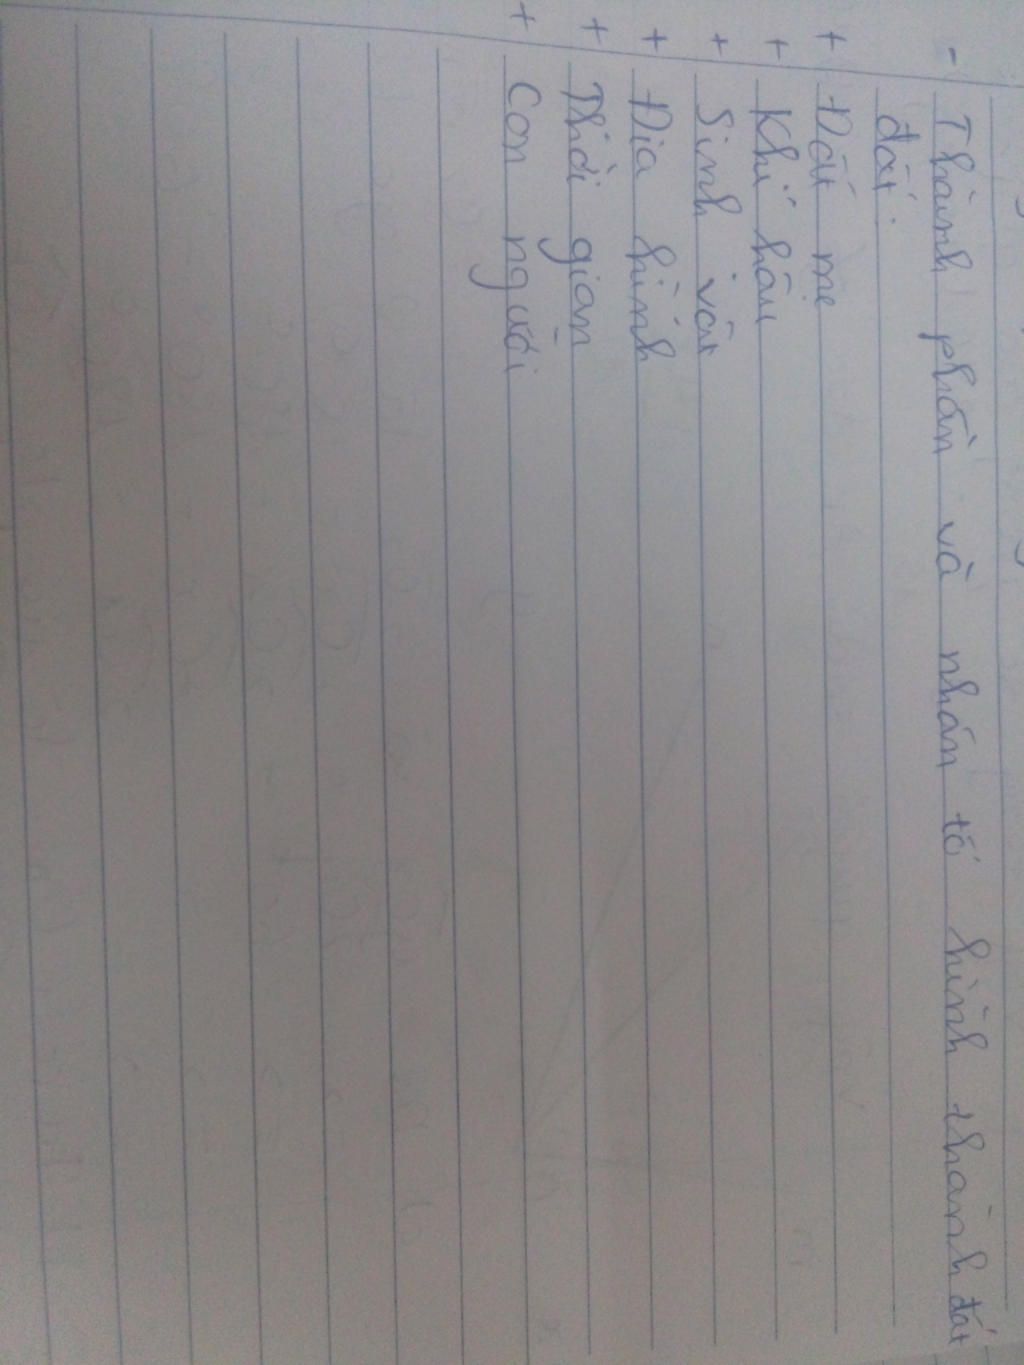 - Thành phần và nhân tố hình thành đất
đất:
+ Đất mẹ
+ Khí hậu
+ Sinh vật
+ Địa hình
+ Thời gian
+ Con người